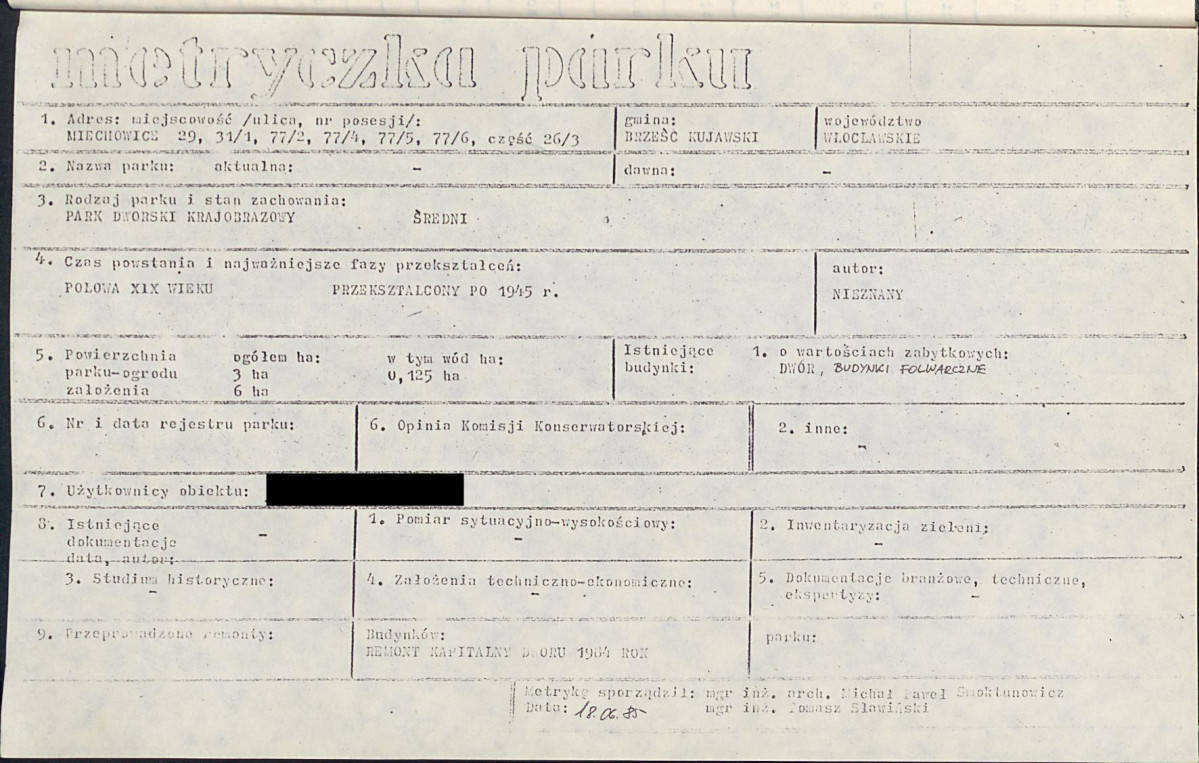 metryczka parku
1. Adres: miejscowość /ulica, nr posesji/:
MIECHOWICE 29, 31/1, 77/2, 77/4, 77/5, 77/6, część 26/3
gmina:
BRZEŚĆ KUJAWSKI
województwo
WŁOCŁAWSKIE
2. Nazwa parku: aktualna: -
dawna: -
3. Rodzaj parku i stan zachowania:
PARK DWORSKI KRAJOBRAZOWY ŚREDNI
4. Czas powstania i najważniejsze fazy przekształceń:
POŁOWA XIX WIEKU PRZEKSZTAŁCONY PO 1945 r.
autor:
NIEZNANY
5. Powierzchnia ogółem ha: w tym wód ha:
parku-ogrodu 3 ha 0,125 ha
założenia 6 ha
Istniejące
budynki:
1. o wartościach zabytkowych:
DWÓR, BUDYNKI FOLWARCZNE
6. Nr i data rejestru parku:
6. Opinia Komisji Konserwatorskiej:
2. inne:
-
7. Użytkownicy obiektu:
8. Istniejące -
dokumentacje
data, autor:
1. Pomiar sytuacyjno-wysokościowy:
-
2. Inwentaryzacja zieleni;
-
3. Studium historyczne:
-
4. Założenia techniczno-ekonomiczne:
-
5. Dokumentacje branżowe, techniczne,
ekspertyzy: -
9. Przeprowadzone remonty:
Budynków:
REMONT KAPITALNY DWORU 1984 ROK
parku:
Metrykę sporządził: mgr inż. arch. Michał Paweł Smoktunowicz
Data: 18.06.85 mgr inż. Tomasz Sławiński